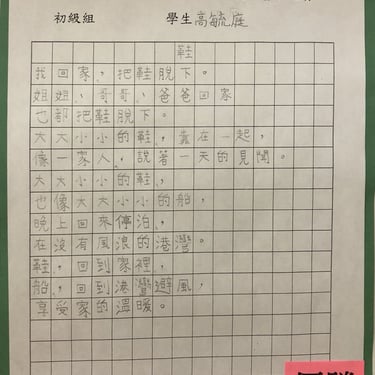 初級組 學生高毓庭
鞋
我回家，把鞋脫下。
姐姐、哥哥、爸爸回家
也都把鞋脫下。
大大小小的鞋，靠在一起，
像一家人，說著一天的見聞。
大大小小的鞋，
也像大大小小的船，
晚上回來停泊，
在沒有風浪的港灣。
鞋，回到家裡，
船，回到港灣避風，
享受家的溫暖。